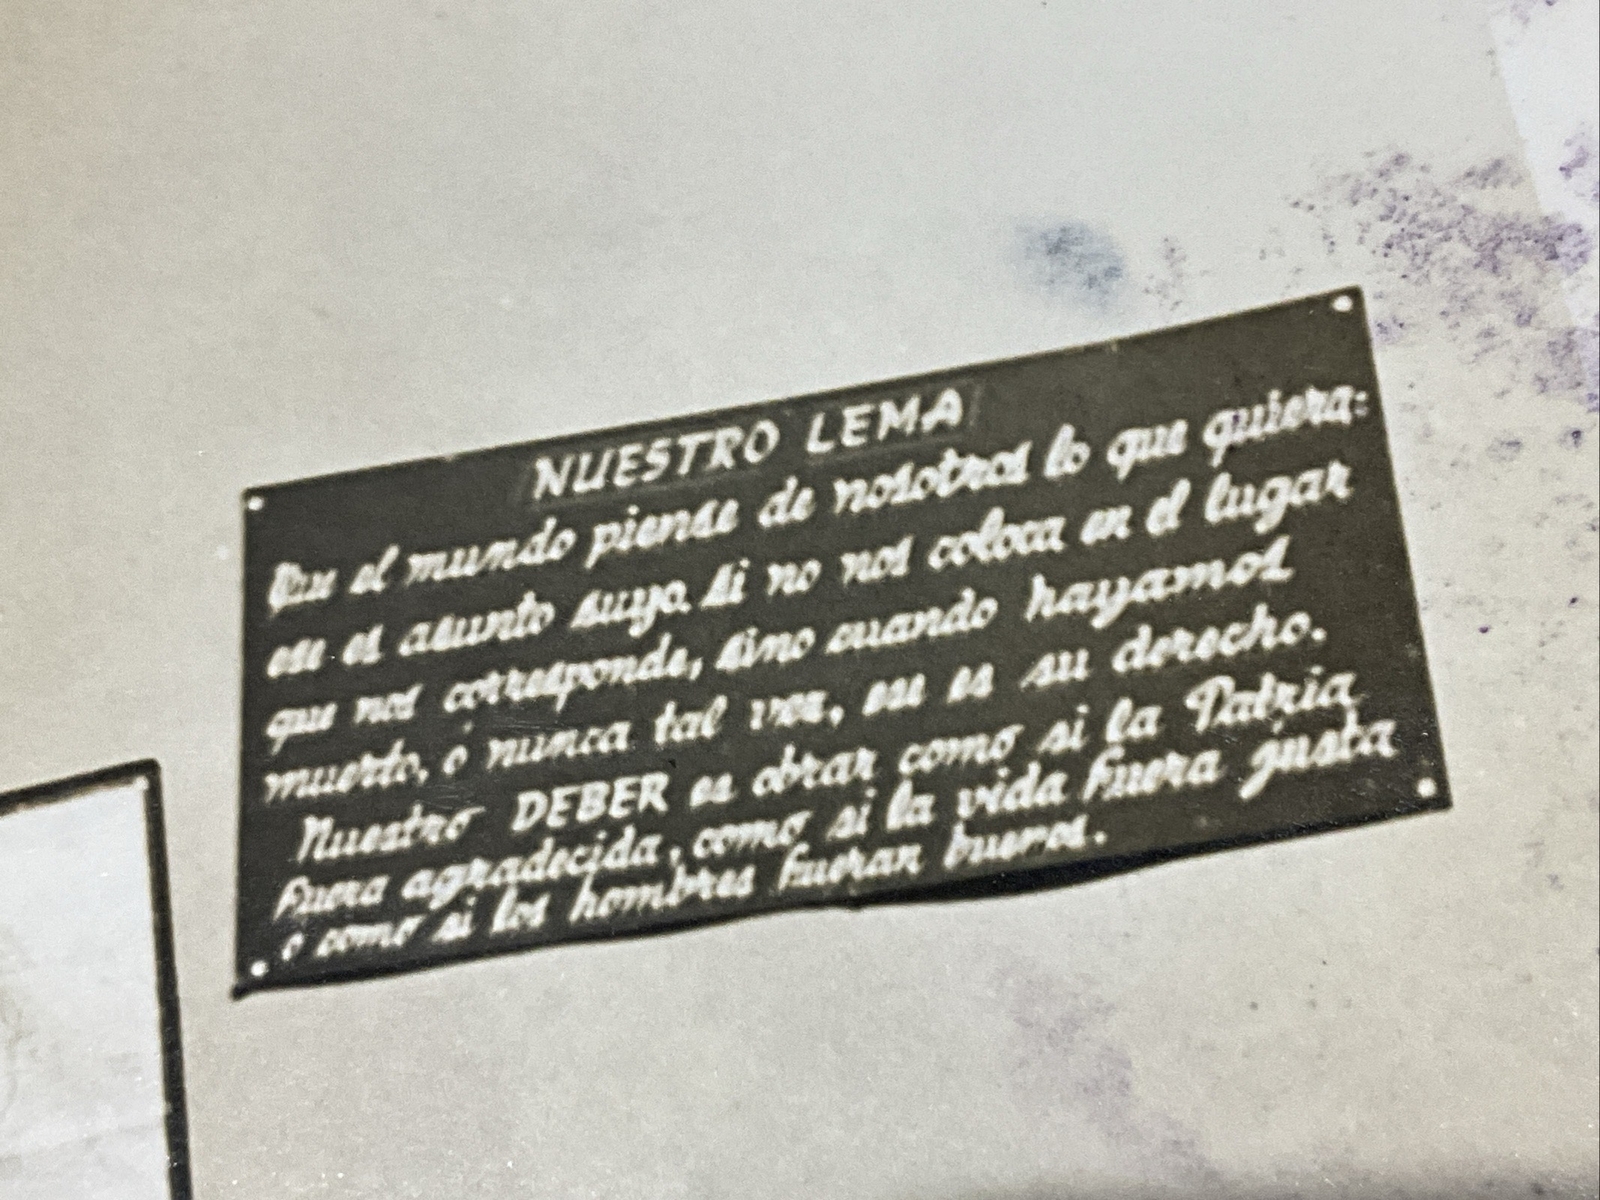 NUESTRO LEMA
Que el mundo piense de nosotros lo que quiera:
ese es asunto suyo. Si no nos coloca en el lugar
que nos corresponde, sino cuando hayamos
muerto, ó nunca tal vez, ese es su derecho.
Nuestro DEBER es obrar como si la Patria
fuera agradecida, como si la vida fuera justa
o como si los hombres fueran buenos.